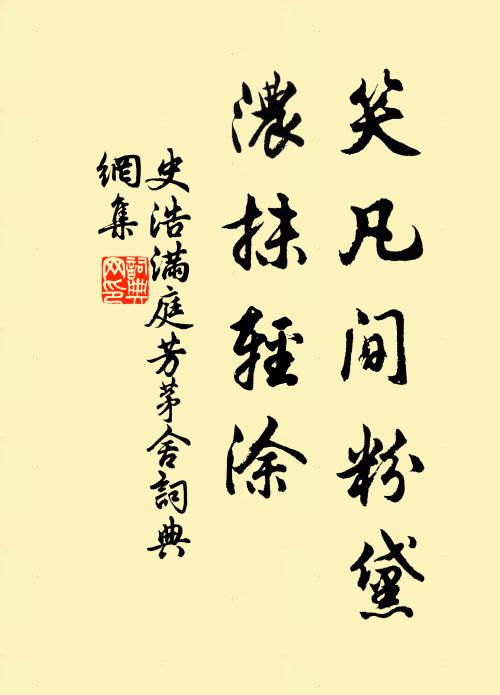 笑凡间粉黛
濃抹輕涂
史浩滿庭芳茅舍詞典
網集
詞典網印